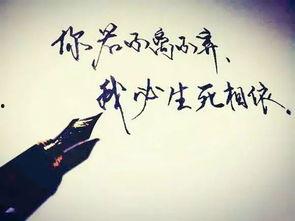 你若不离不弃、
我必生死相依、